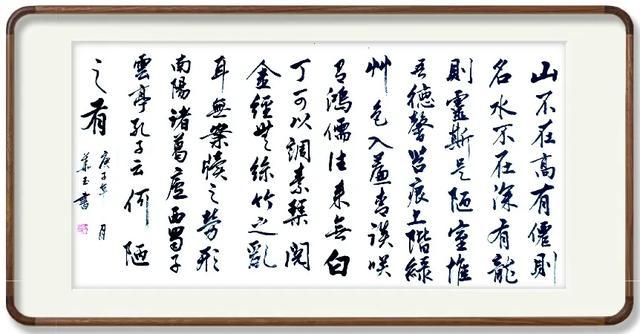 山不在高有僊則
名水不在深有龍
則靈斯是陋室惟
吾德馨苔痕上階綠
艸色入簾青談咲
有鴻儒往来無白
丁可以調素琴閱
金經無絲竹之亂
耳無案牘之勞形
南陽諸葛廬西蜀子
雲亭孔子云何陋
之有
庚子年 月
玉書